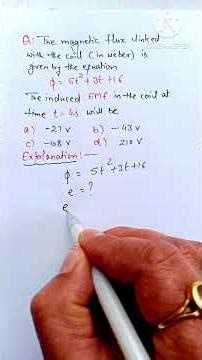 Q: The magnetic flux linked
with the coil (in weber) is
given by the equation
ϕ = 5t²+3t+16
The induced EMF in the coil at
time t = 4s will be
a) -27 V b) -43 V
c) -108 V d) 210 V
Explanation:-
ϕ = 5t²+3t+16
e = ?
e